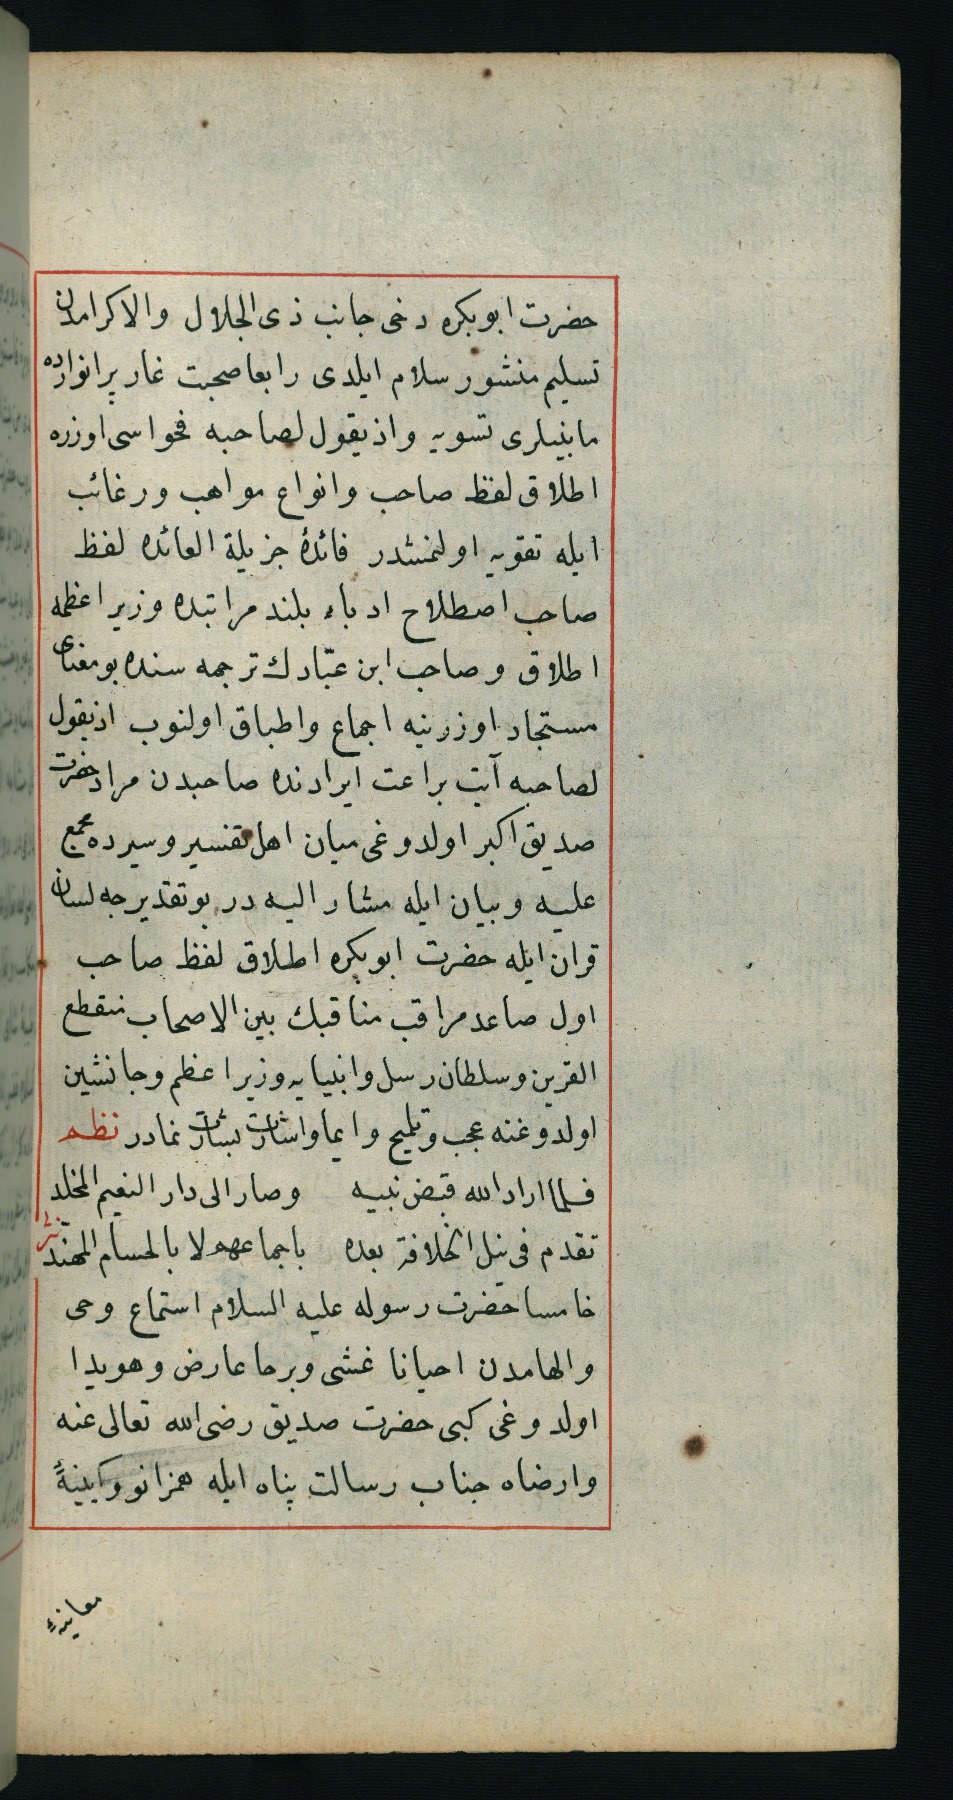 حضرت ابوبكره دخى جانب ذى الجلال والاكرامدن
تسليم منشور سلام ايلدى رابعا صحبت غار پرانوارده
مابينلرى تسويه واذيقول لصاحبه فحواسى اوزره
اطلاق لفظ صاحب وانواع مواهب ورغائب
ايله تقويه اولنمشدر فائدۀ جزيلة العائده لفظ
صاحب اصطلاح ادباء بلند مراتبده وزير اعظمه
اطلاق وصاحب ابن عبّادك ترجمه سنده بومعناى
مستجاد اوزرينه اجماع واطباق اولنوب اذيقول
لصاحبه آيت براعت ايرادنده صاحبدن مراد حضرت
صديق اكبر اولدوغى ميان اهل تفسير وسيرده مجمع
عليه وبيان ايله مشار اليه در بوتقديرجه لسان
قران ايله حضرت ابوبكره اطلاق لفظ صاحب
اول صاعد مراقب مناقبك بين الاصحاب منقطع
القرين وسلطان رسل وانبيايه وزير اعظم وجانشين
اولدوغنه عجب وتلميح وايما واشارت بشارت نمادر نظم
فلما اراد الله قبض نبيه وصار الى دار النعيم المخلد
تقدم فى نيل الخلافة بعده باجماعهم لا بالحسام المهنّد نثر
خامسا حضرت رسوله عليه السلام استماع وحى
والهامدن احيانا غشى وبرحا عارض وهويدا
اولدوغى كبى حضرت صديق رضى الله تعالى عنه
وارضاه جناب رسالت پناه ايله همزانو وآيينۀ
معاينۀ